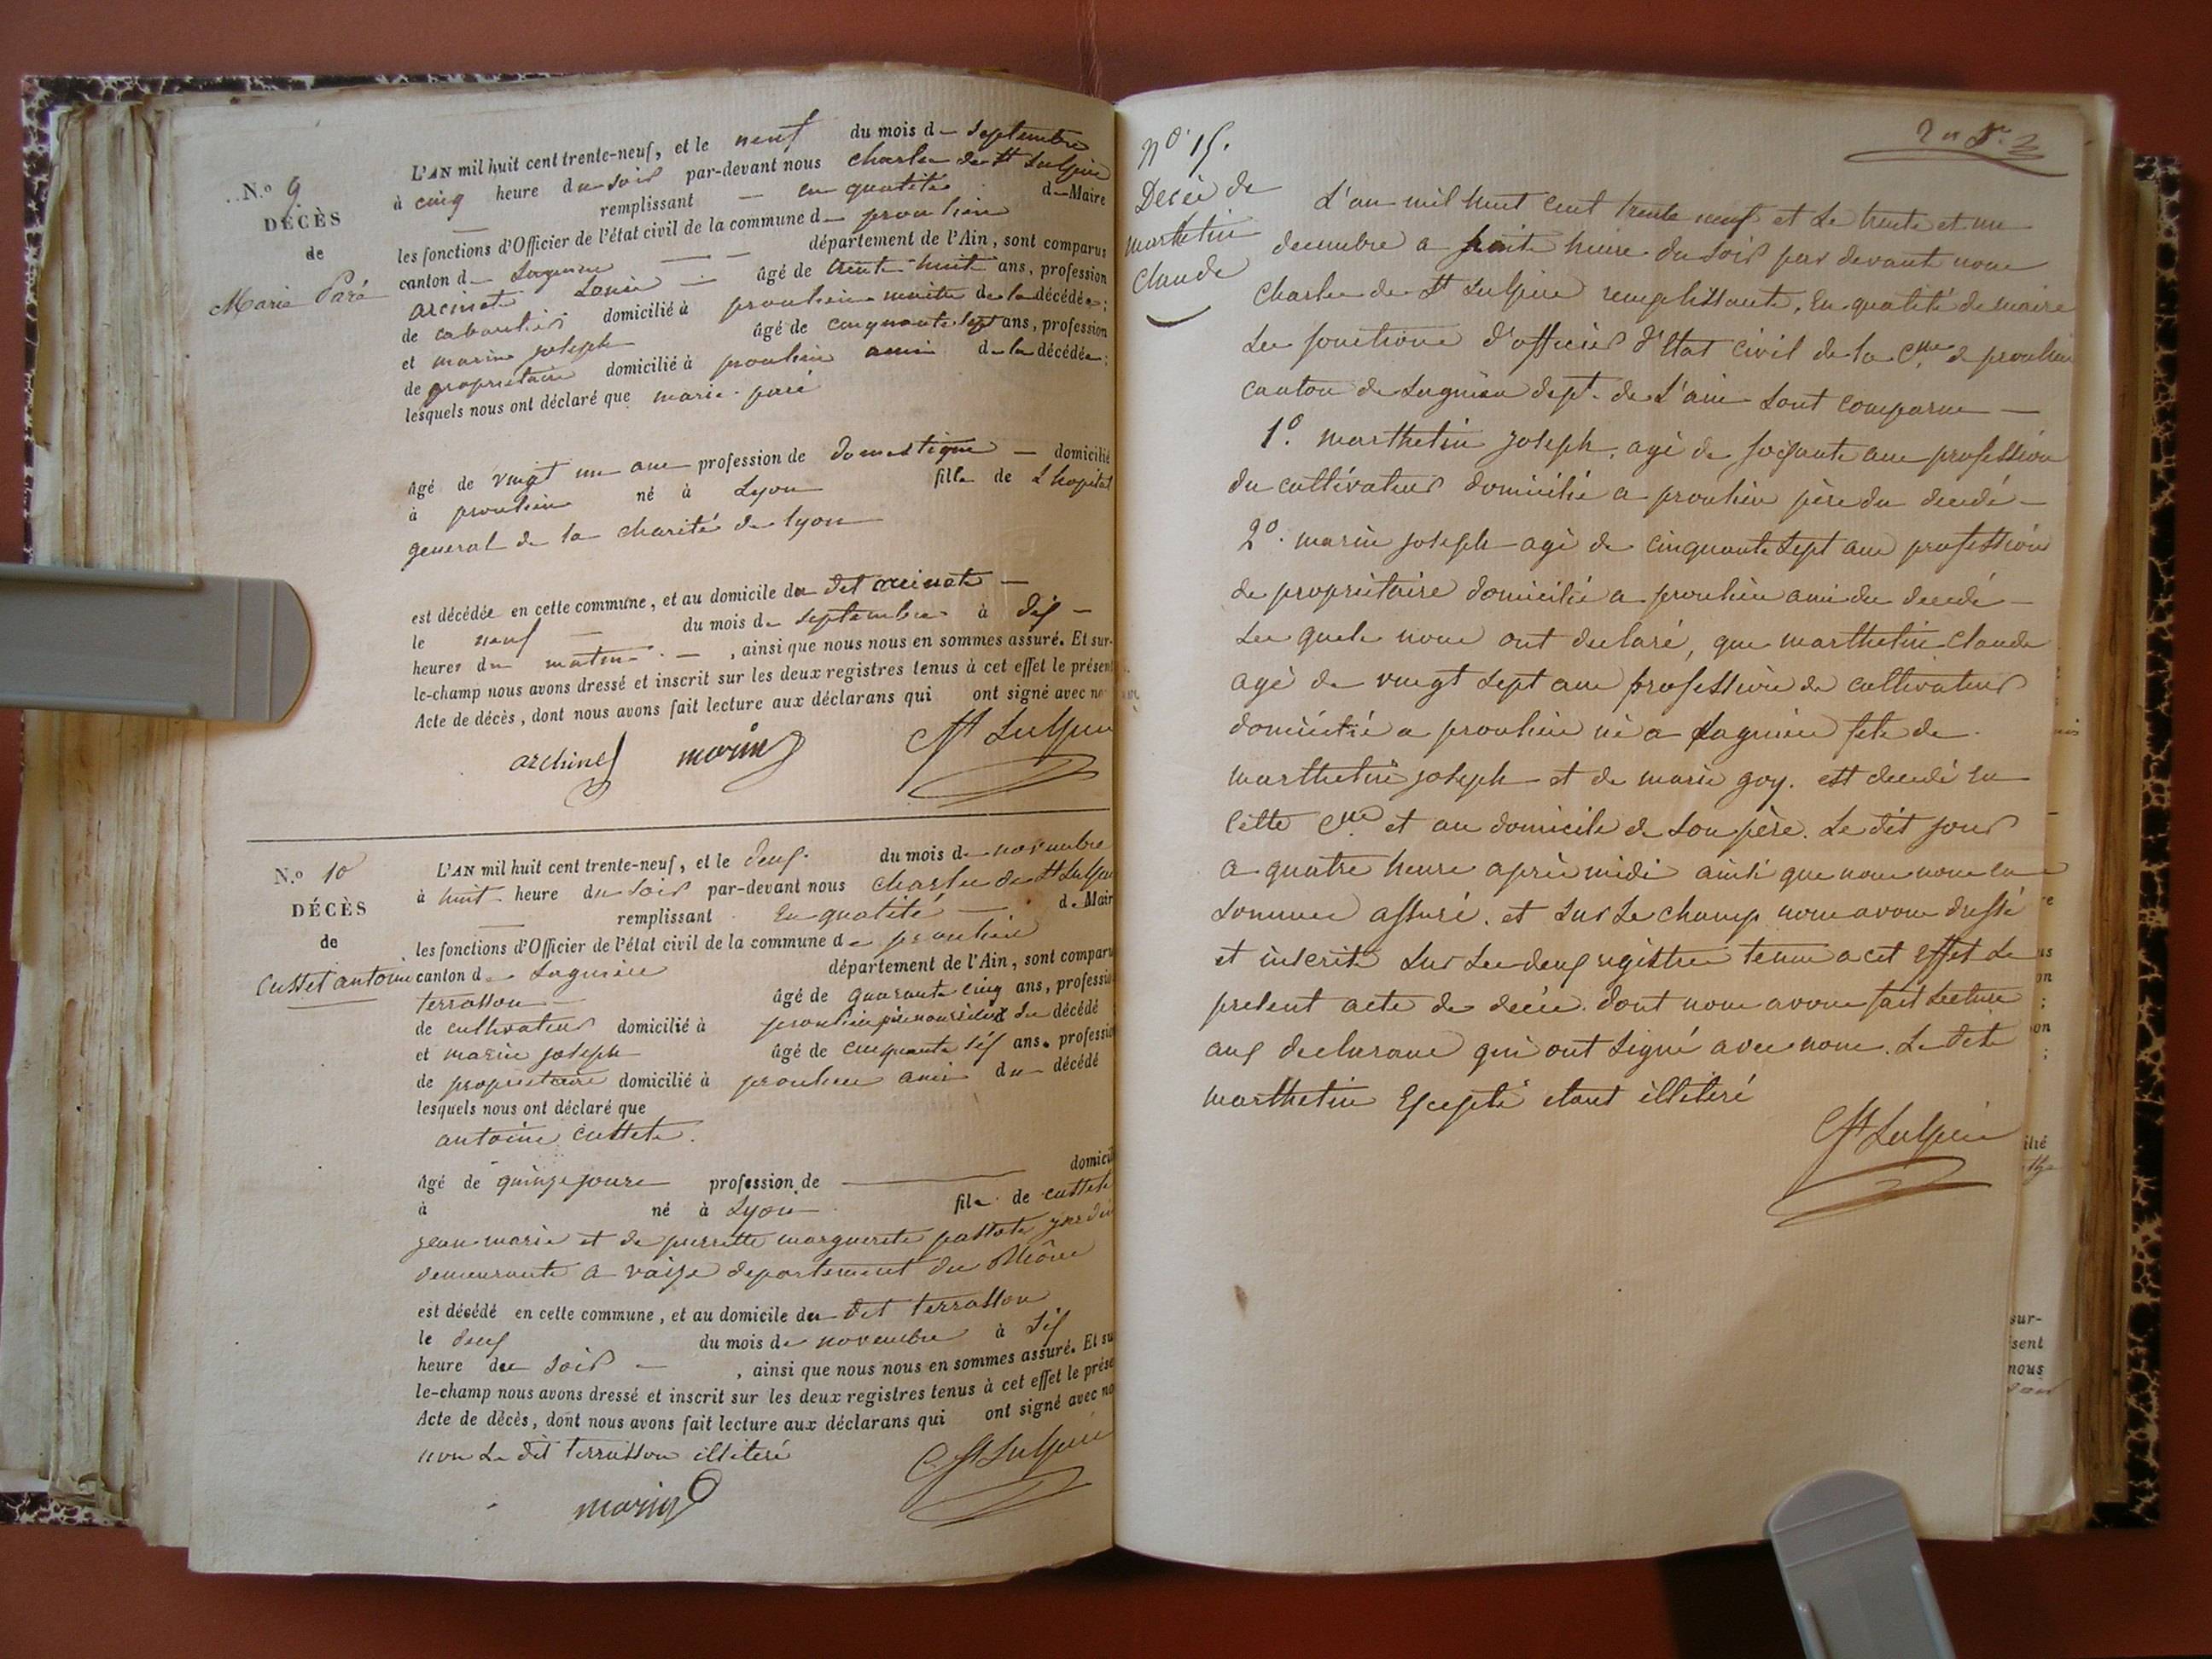 N.o 9
DÉCÈS
de
Marie Paré
L'AN mil huit cent trente-neuf, et le neuf du mois de septembre
à cinq heure du soir par-devant nous Charles de St Sulpice
remplissant en qualité de Maire
les fonctions d'Officier de l'état civil de la commune de proulieu
canton de Lagnieu département de l'Ain, sont comparus
Louis âgé de trente huit ans, profession
de cabaretier domicilié à proulieu maitre de la décédée;
et marin joseph âgé de cinquante sept ans, profession
de propriétaire domicilié à proulieu ami de la décédée;
lesquels nous ont déclaré que marie paré
âgé de vingt un ans profession de domestique domicilié
à proulieu né à Lyon fille de L'hopital
general de la charité de lyon
est décédée en cette commune, et au domicile du dit
le neuf du mois de septembre à dix
heures du matin, ainsi que nous nous en sommes assuré. Et sur-
le-champ nous avons dressé et inscrit sur les deux registres tenus à cet effet le présent
Acte de décès, dont nous avons fait lecture aux déclarans qui ont signé avec no
marin St Sulpice
N.o 10
DÉCÈS
de
Custet antoine
L'AN mil huit cent trente-neuf, et le deux du mois de novembre
à huit heure du soir par-devant nous Charles de St Sulpice
remplissant En qualité de Mair
les fonctions d'Officier de l'état civil de la commune de proulieu
canton de Lagnieu département de l'Ain, sont comparu
terrasson âgé de quarante cinq ans, professio
de cultivateur domicilié à proulieu père nourricier du décédé
et marin joseph âgé de cinquante sept ans, professio
de propriétaire domicilié à proulieu ami du décédé
lesquels nous ont déclaré que
antoine custet
âgé de quinze jours profession de domicil
à né à Lyon fils de custet
jean-marie et de pierrette marguerite
demeurants a vaise departement du Rhône
est décédé en cette commune, et au domicile du dit terrasson
le deux du mois de novembre à six
heure du soir, ainsi que nous nous en sommes assuré. Et su
le-champ nous avons dressé et inscrit sur les deux registres tenus à cet effet le prése
Acte de décès, dont nous avons fait lecture aux déclarans qui ont signé avec no
non Le dit terrasson illitéré
marin St Sulpice
no 15.
Décès de
marthetin
Claude
L'an mil huit cent trente neuf et Le trente et un
decembre a huit heure du soir par devant nous
Charles de St Sulpice remplissant, En qualité de maire
Les fonctions d'officier d'Etat civil de la Cne de proulieu
canton de Lagnieu dept. de L'ain sont comparus
1o. marthetin joseph, agé de soixante ans profession
de cultivateur domicilié a proulieu père du decedé
2o. marin joseph agé de cinquante sept ans profession
de propriétaire domicilié a proulieu ami du decedé
Les quels nous ont declaré, que marthetin Claude
agé de vingt sept ans profession de cultivateur
domicilié a proulieu né a Lagnieu fils de
marthetin joseph et de marie goy. est decedé en
Cette Cne et au domicile de son père. Le dit jour
a quatre heure après midi ainsi que nous nous en
sommes assuré. et sur Le champ nous avons dressé
et inscrit sur Les deux registres tenus a cet effet Le
present acte de décès. dont nous avons fait Lecture
aux declarans qui ont signé avec nous. Le dit
marthetin Excepté étant illitéré
St Sulpice
sur-
sent
nous